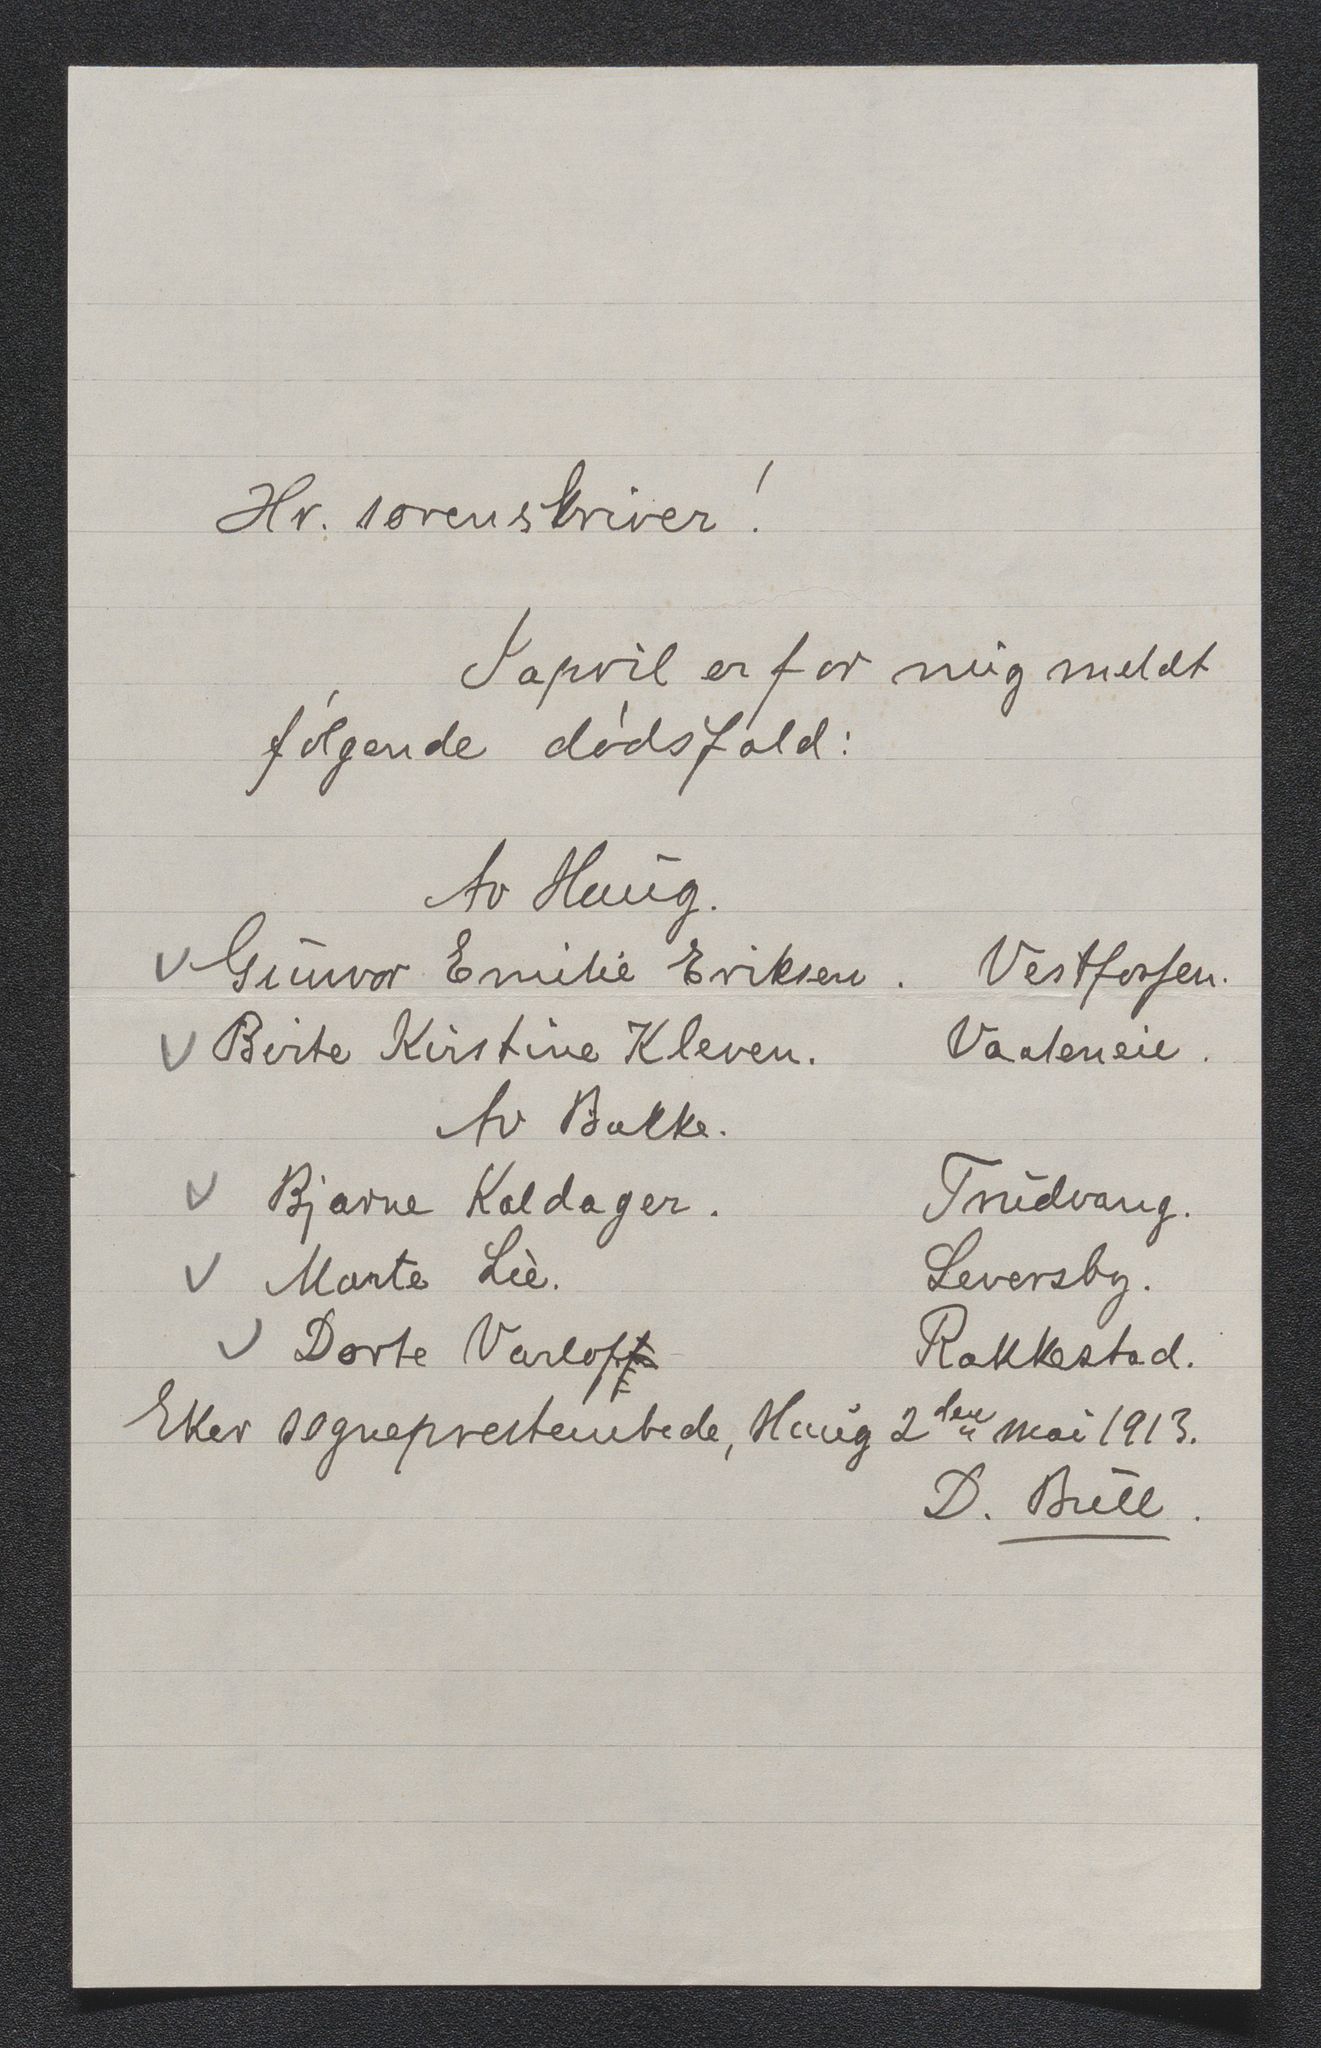 Hr. sorenskriver!
I april er for mig meldt
følgende dødsfald:
Av Haug.
Gunvor Emilie Eriksen. Vestfossen.
Birte Kirstine Kleven. Vaaleneie.
Av Bakke.
Bjarne Koldager. Trudvang.
Marte Lie. Leversby.
Dorte Varlo Rakkestad.
Eker sogneprestembede, Haug 2den mai 1913.
D. Bull.